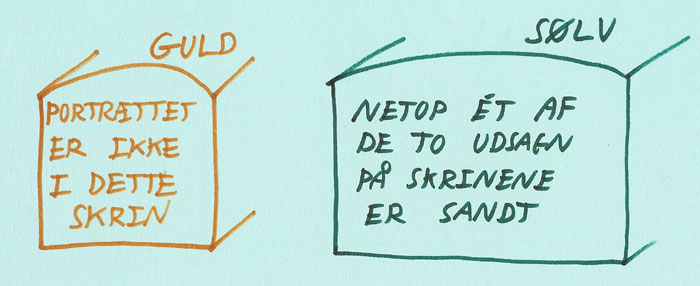 GULD
PORTRÆTTET
ER IKKE
I DETTE
SKRIN
SØLV
NETOP ÉT AF
DE TO UDSAGN
PÅ SKRINENE
ER SANDT